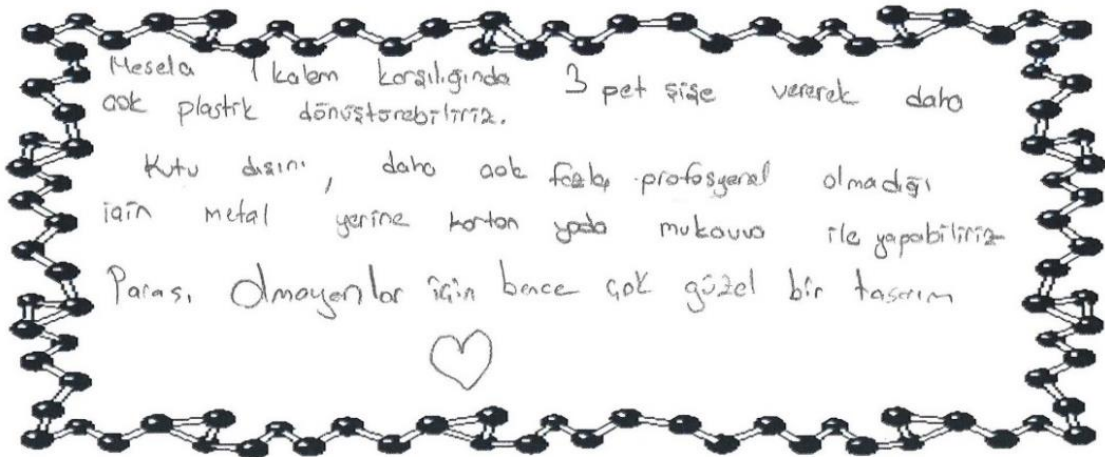 Mesela 1 kalem karşılığında 3 pet şişe vererek daha
çok plastik dönüştürebiliriz.
Kutu dışını, daha çok fazla profosyenel olmadığı
için metal yerine karton yada mukavva ile yapabiliriz
Parası Olmayanlar için bence çok güzel bir tasarım